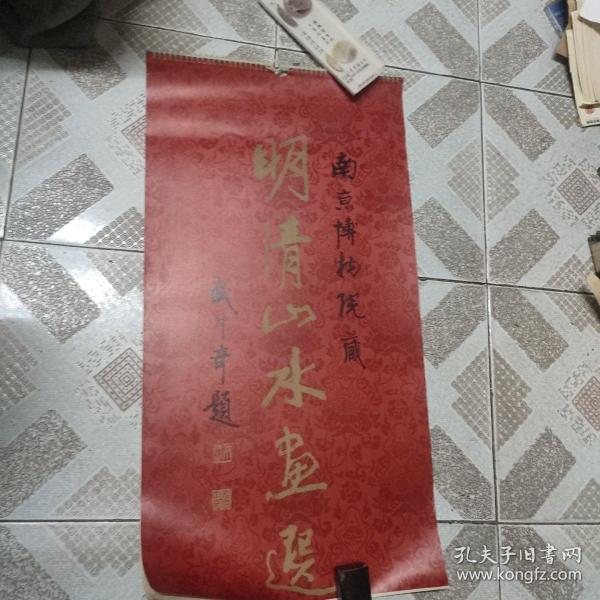 南京博物院藏
明清山水画選
武中奇題
孔夫子旧書网
www.kongfz.com